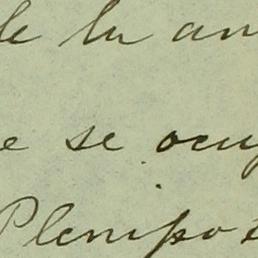 de lu an
e se ocup
Plenipo